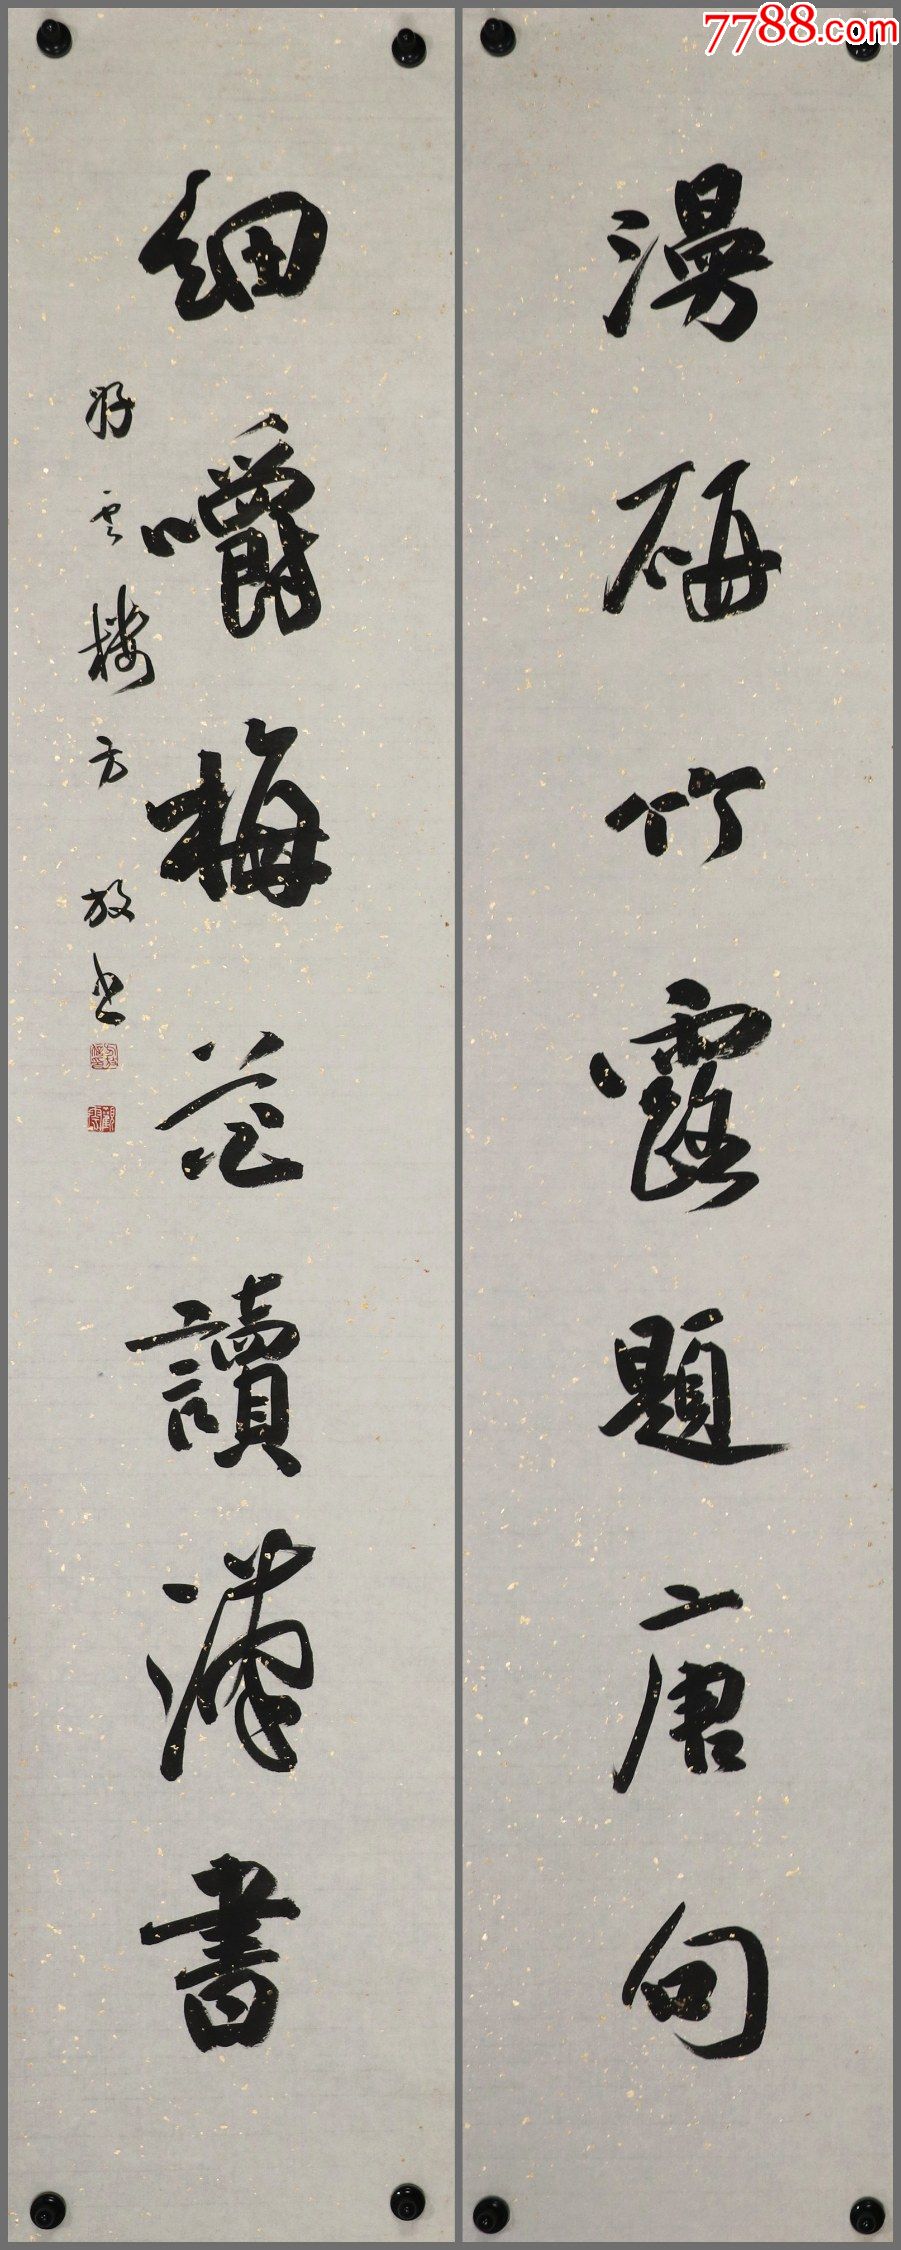 7788.com
漫研竹露題唐句
細嚼梅花讀漢書
雲樓方放書